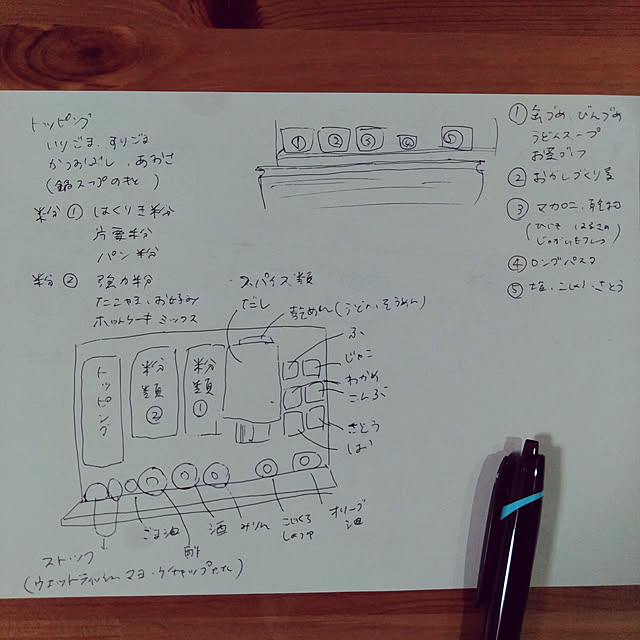 トッピング
いりごま、すりごま
かつおぶし、あおさ
(鍋スープのもと)
粉①はくりき粉
片栗粉
パン粉
粉② 強力粉
たこやき、お好み
ホットケーキミックス
① ② ③ ④ ⑤
① 缶づめ、びんづめ
うどんスープ
お茶
② おかしづくり
③ マカロニ、乾物
(ひじき はるさめ
④ ロングパスタ
⑤ 塩、こしょう さとう
スパイス類
だし
乾めん(うどん、そうめん)
ふ
じゃこ
わかめ
こんぶ
さとう
しお
トッピング
粉類②
粉類①
ごま油
酢
酒
みりん
こいくち
しょうゆ
オリーブ
油
ストック
(ウェットティッシュ マヨ・ケチャップなど)